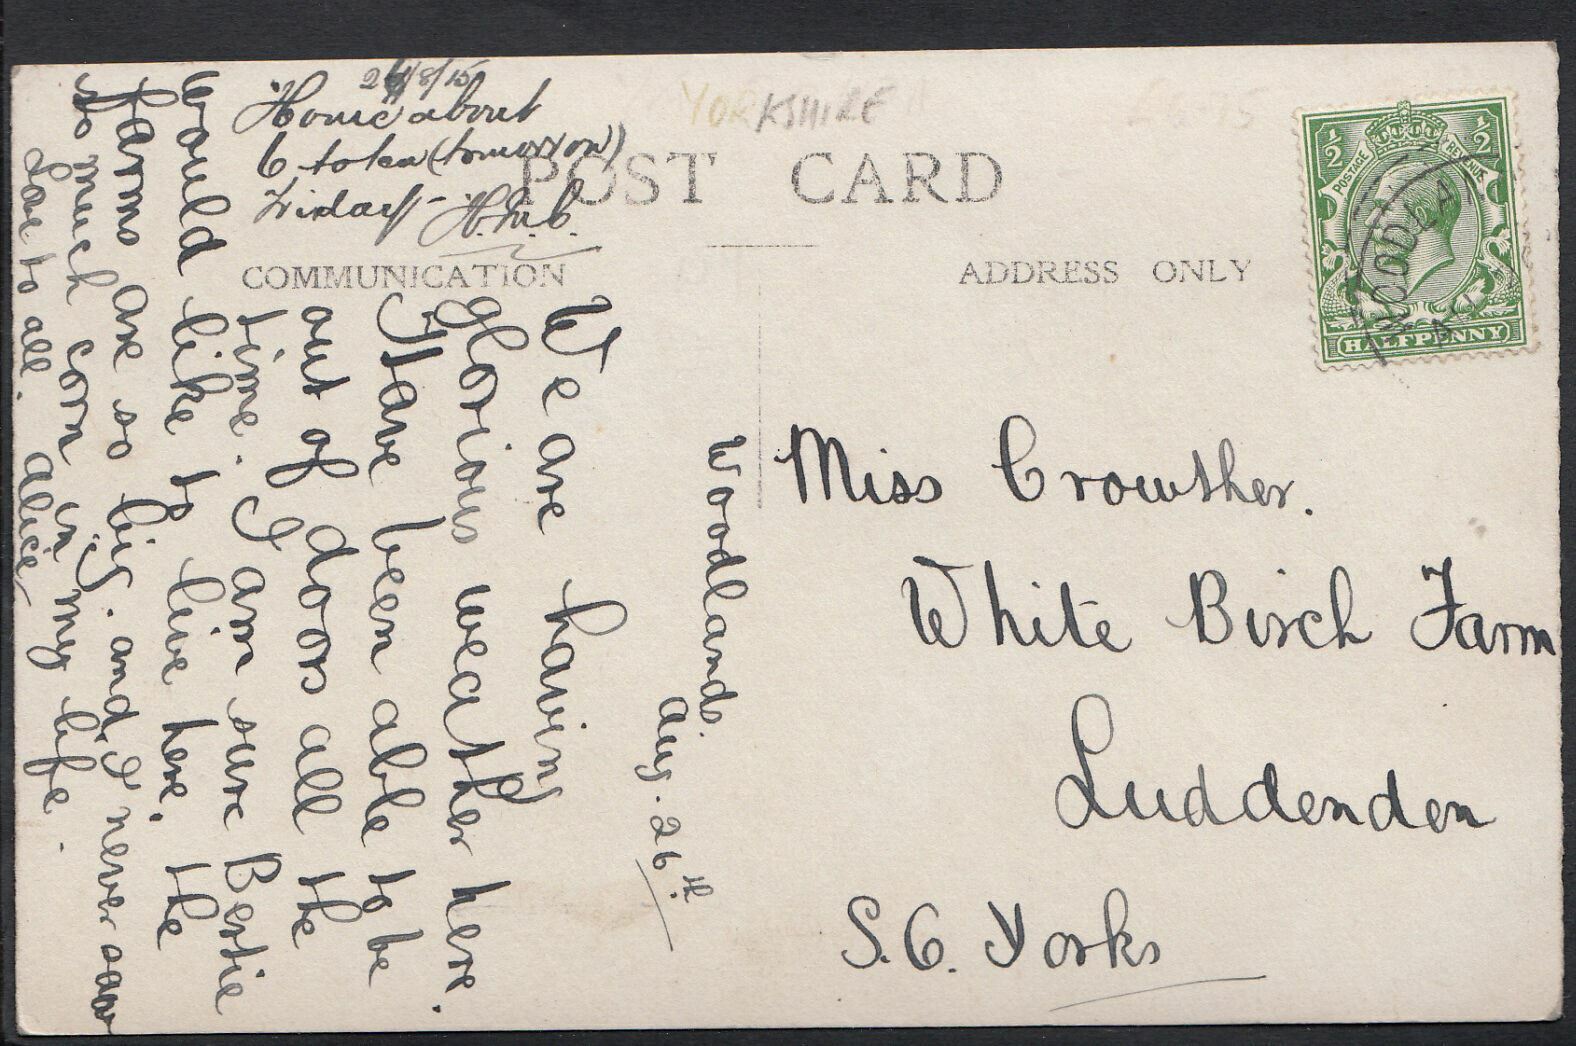 26/8/15
Home about
6 to tea (tomorrow)
Friday - H.M.C.
YORKSHIRE
POST CARD
COMMUNICATION
ADDRESS ONLY
1/2 1/2
POSTAGE REVENUE
HALFPENNY
WOODLA
AU
Miss Crowther.
White Birch Farm
Luddenden
S.O. Yorks
Woodlands.
Aug. 26th.
We are having
glorious weather here.
Have been able to be
out of doors all the
time. I am sure Bertie
would like to live here, the
farms are so big. and, I never saw
so much corn in my life.
Love to all. Alice